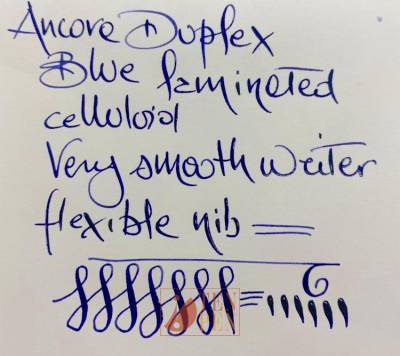 Ancora Duplex
Blue laminated
celluloid
Very smooth writer
flexible nib